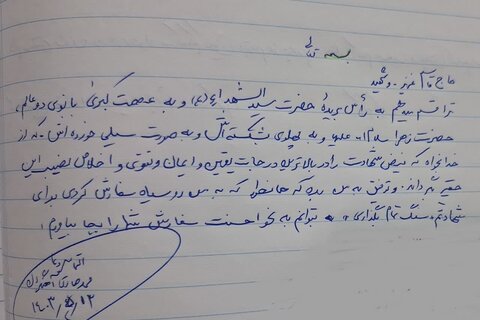 بسمه تعالی
حاج قاسم عزیز
ترا قسم میدهم به رأس بریدۀ حضرت سیدالشهداء(ع) و به عصمت کبری بانوی دو عالم،
حضرت زهرا سلام ا... علیها و به پهلوی شکسته اش و به صورت سیلی خورده اش که از
خدا بخواه که فیض شهادت را در بالاترین درجات یقین و ایمان و تقوی و اخلاص نصیب این
حقیر بگرداند. و توفیق به من بده که به من رو سیاه سفارش کردی برای
شهادتم سنگ تمام بگذاری، بتوانم به نحو احسنت سفارش شما را بجا بیاورم
التماس دعا
۱۴۰۳/۵/۱۲